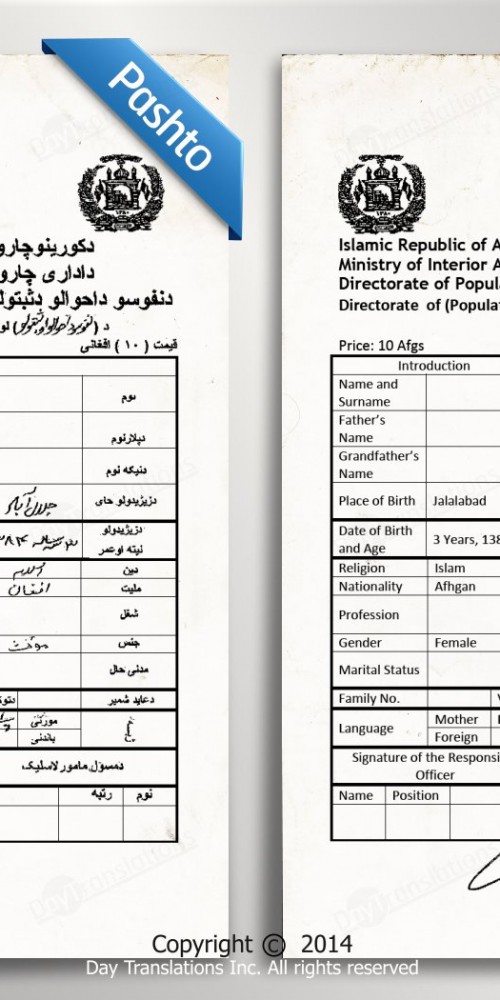 Pashto
دکورینوچارو
داداری چارو
دنفوسو داحوالو دثبتولو
قیمت ( ۱۰ ) افغانی
نوم
دپلارنوم
دنیکه نوم
دزیژیدولو ځای
جلال آباد
دزیژیدولو
نیټه اوعمر
دین
اسلام
ملیت
افغان
شغل
جنس
مؤنث
مدنی حال
دعاید شمیر
مورنی
باندنی
دمسؤل مامور لاسلیک
نوم رتبه
Islamic Republic of A
Ministry of Interior A
Directorate of Popula
Directorate of (Populat
Price: 10 Afgs
Introduction
Name and
Surname
Father's
Name
Grandfather's
Name
Place of Birth Jalalabad
Date of Birth
and Age
3 Years, 138
Religion Islam
Nationality Afhgan
Profession
Gender Female
Marital Status
Family No.
Language
Mother
Foreign
Signature of the Responsi
Officer
Name Position
Copyright © 2014
Day Translations Inc. All rights reserved